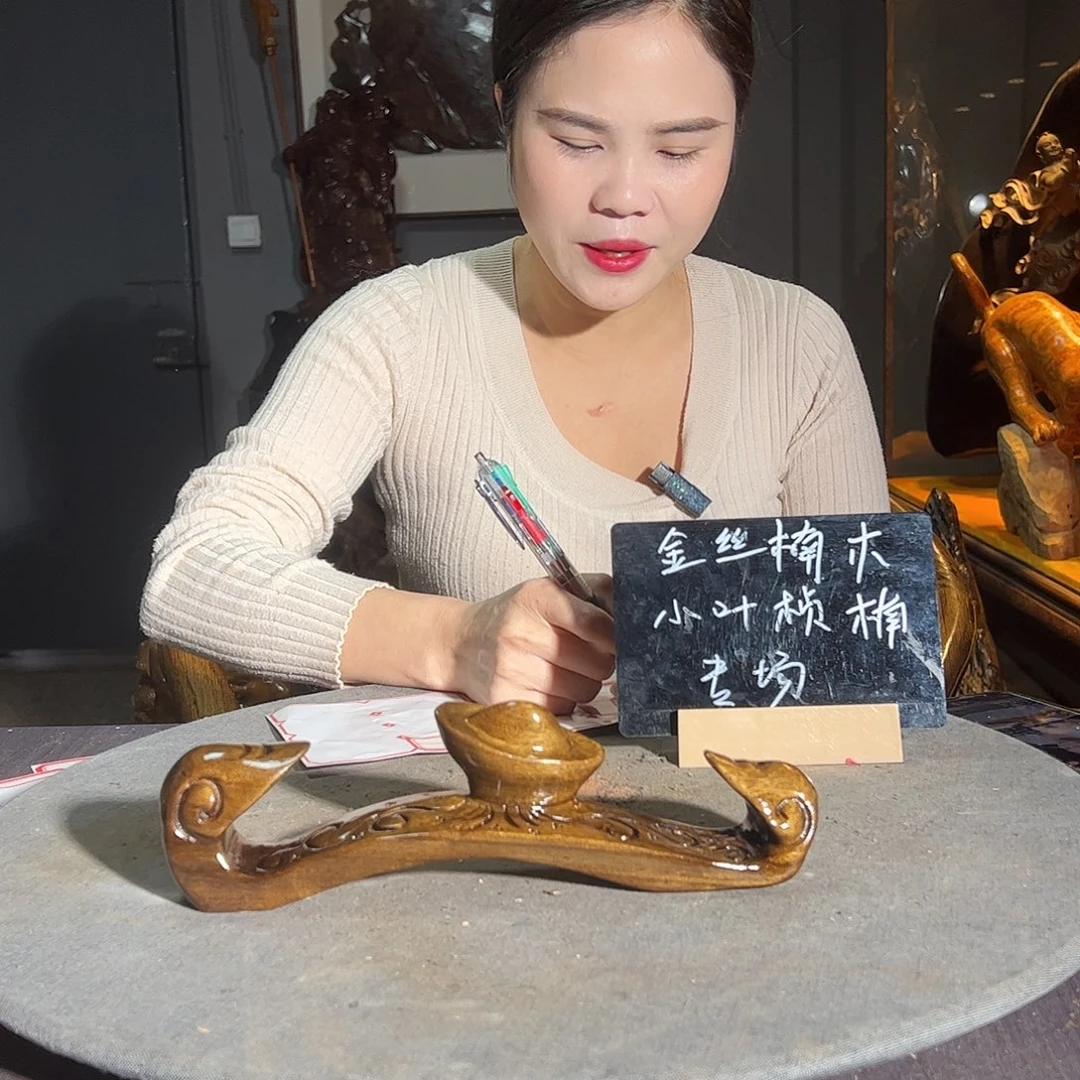 金丝楠木
小叶桢楠
专场